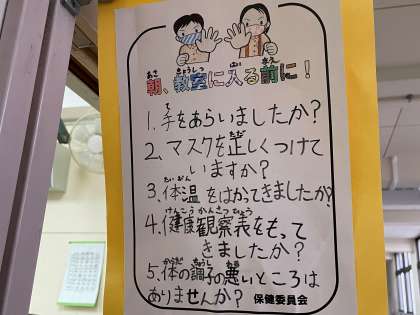 朝、教室に入る前に！
1.手をあらいましたか？
2.マスクを正しくつけて
いますか？
3.体温をはかってきましたか？
4.健康観察表をもって
きましたか？
5.体の調子の悪いところは
ありませんか？ 保健委員会